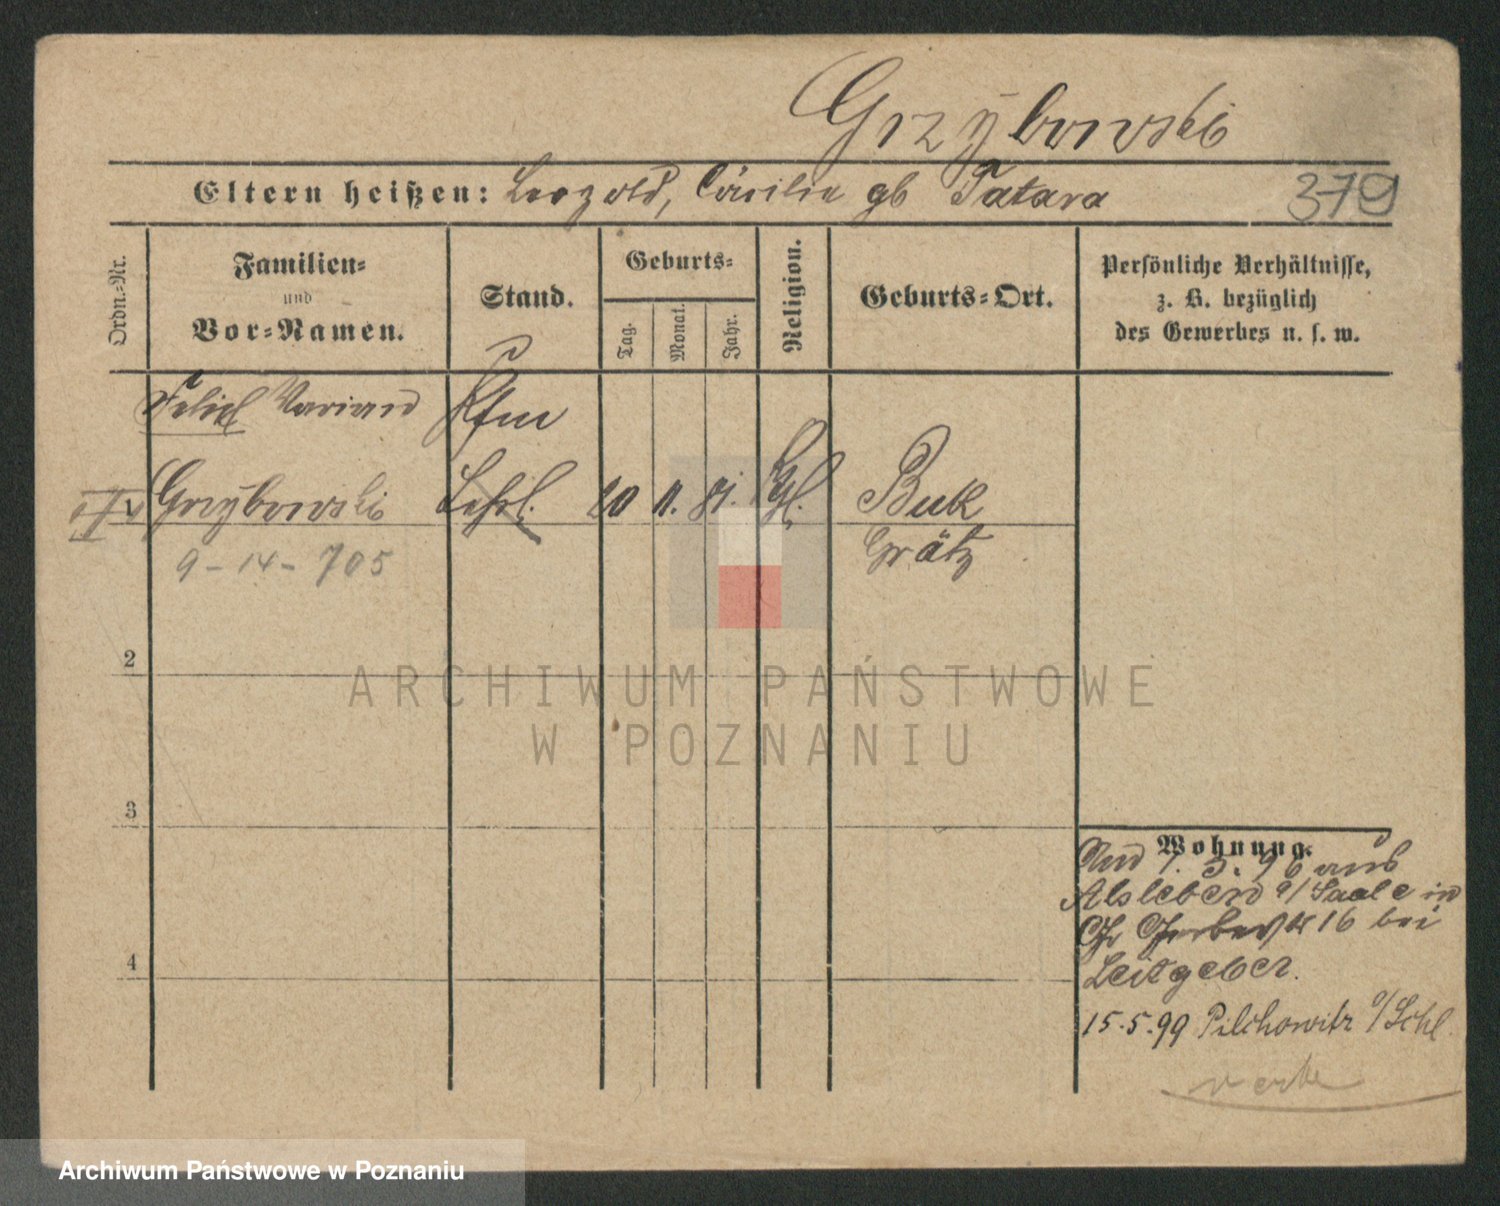 Grzybowski
Eltern heißen: Leopold, Cäcilie gb Tatara
379
Ordn.=Nr.
Familien=
und
Vor=Namen.
Stand.
Geburts=
Tag.
Monat.
Jahr.
Religion.
Geburts=Ort.
Persönliche Verhältnisse,
z. B. bezüglich
des Gewerbes u. s. w.
Felix Marian Kfm
1 Grzybowski Lehrl. 20 11. 81. Kgl. Buk
9-14-705 Grätz
2
3
4
Wohnung.
1. 3. 96 aus
Alsleben a/Saale in
Gr Gerberstr 16 bei
Leitgeber.
15.5.99 Pilchowitz o/Schl.
ARCHIWUM PAŃSTWOWE
W POZNANIU
Archiwum Państwowe w Poznaniu